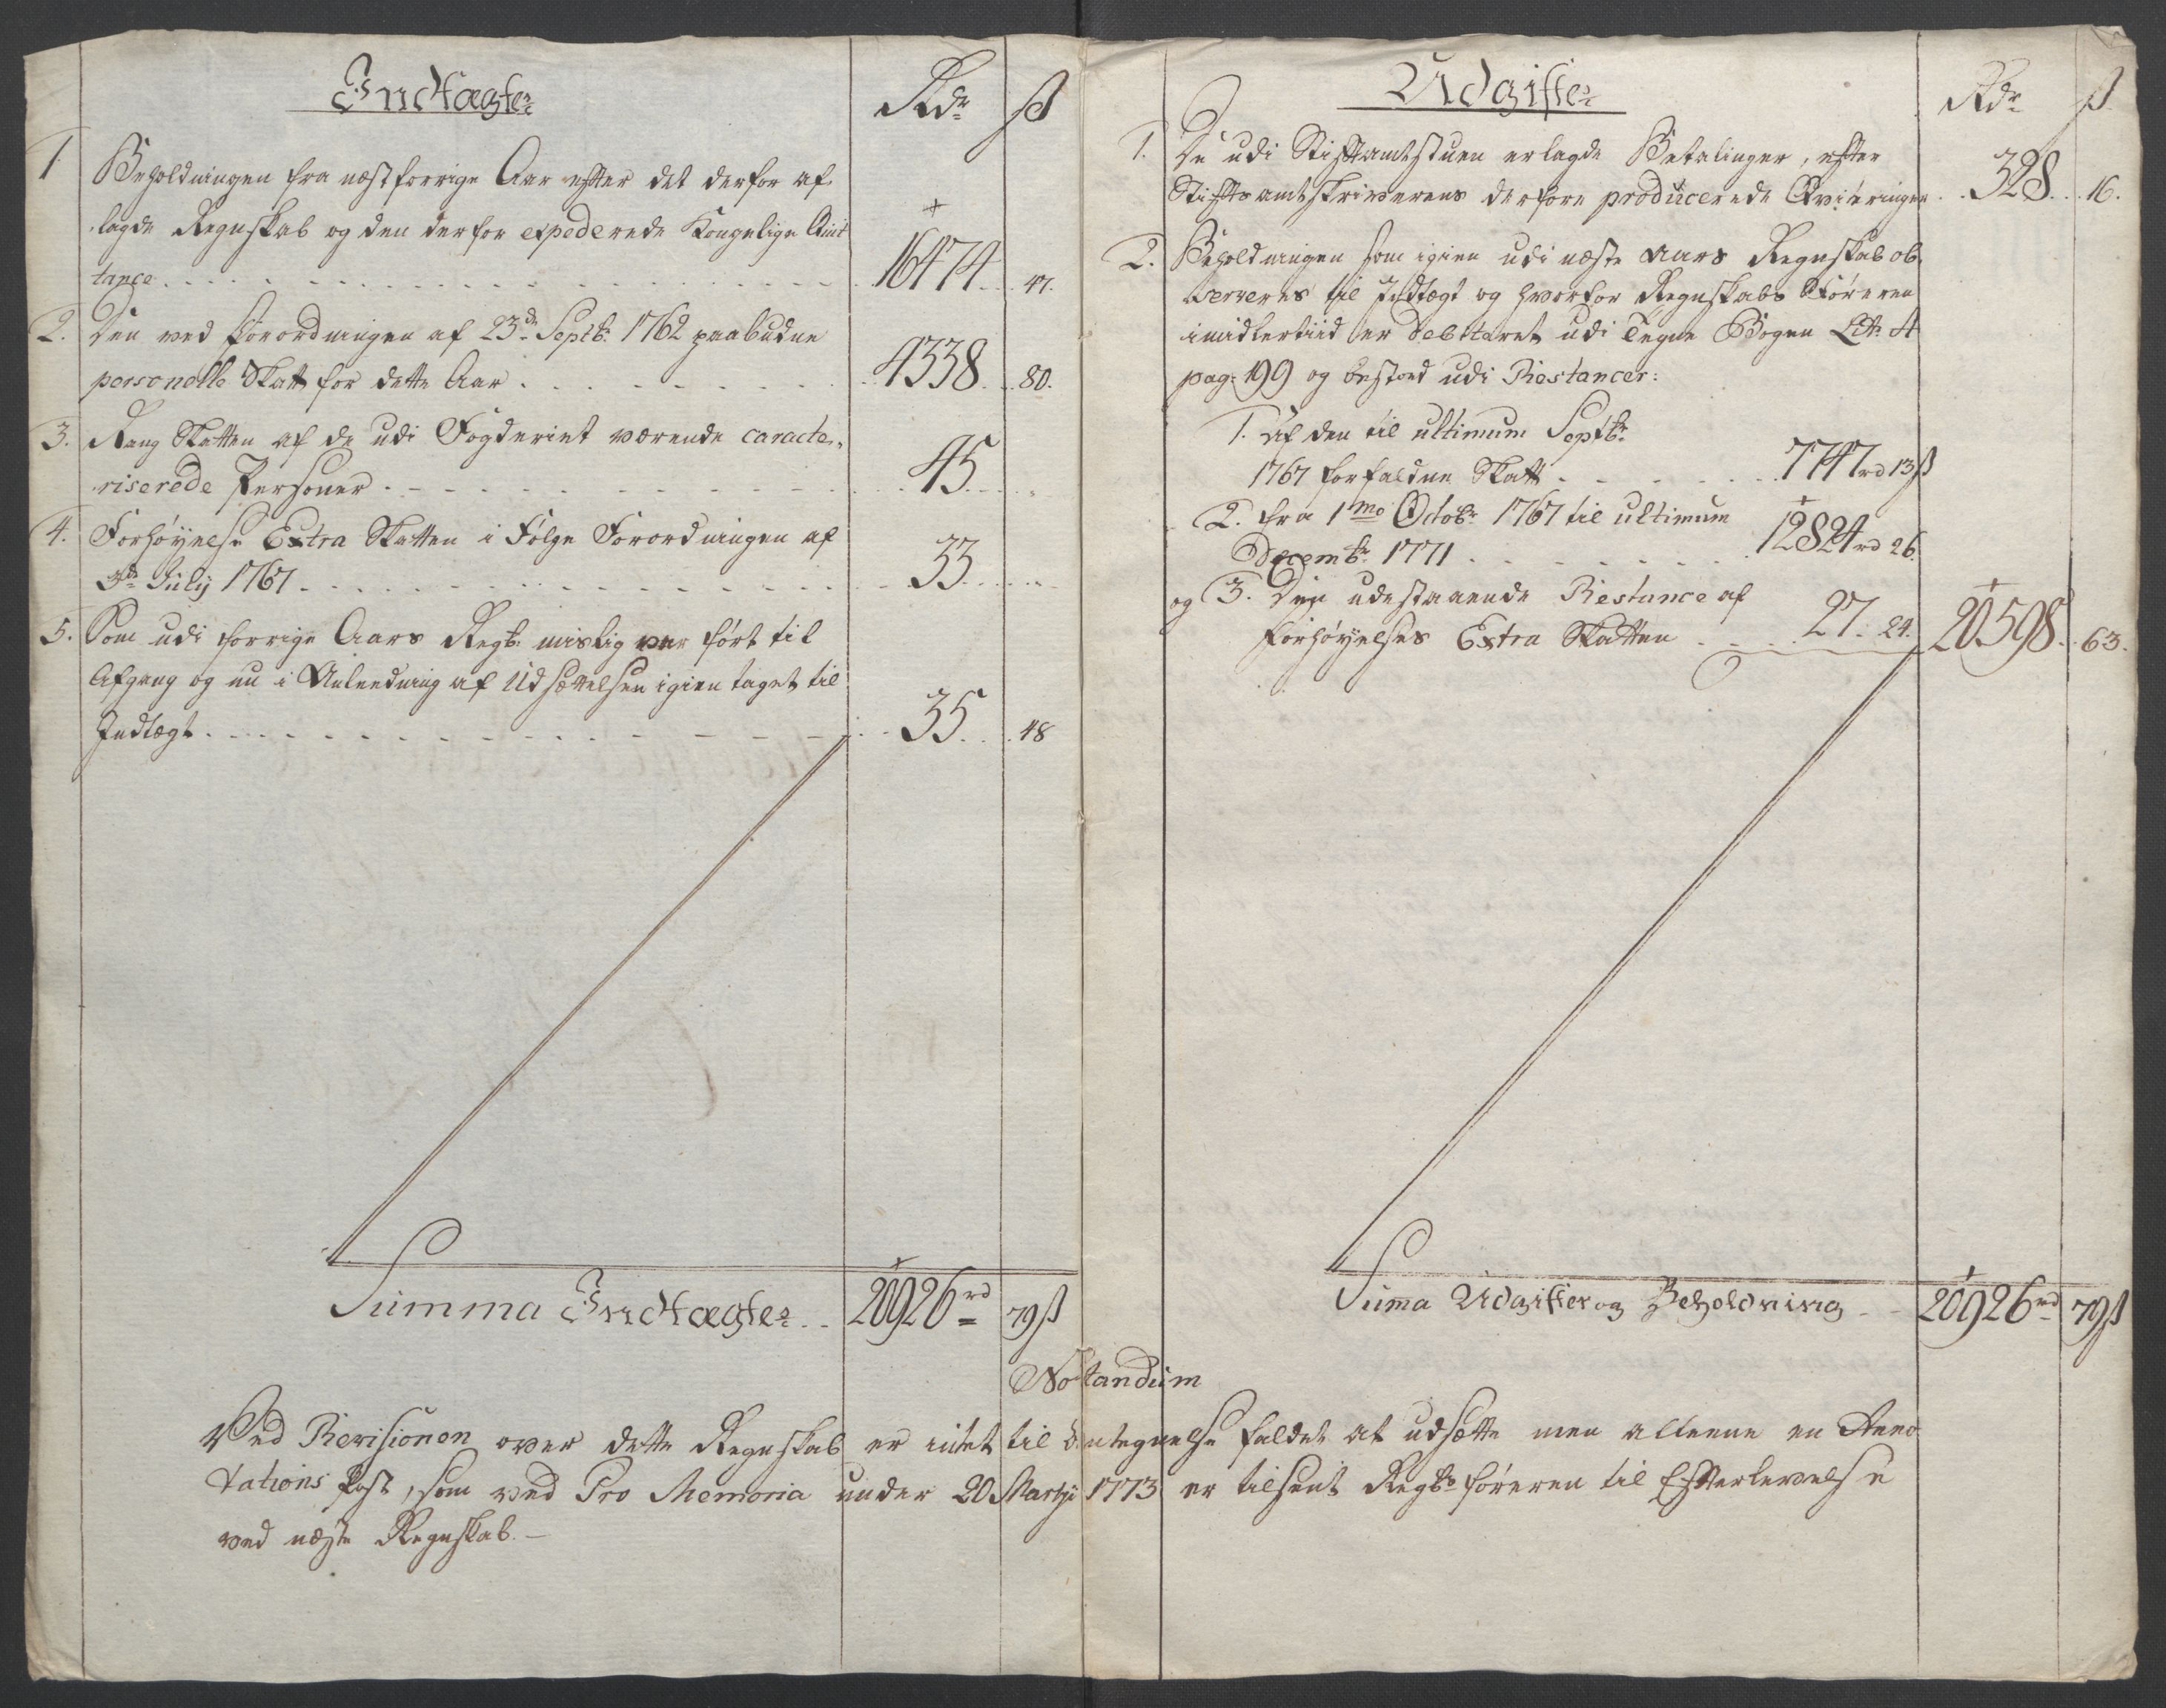 Indtægter
Rdr ß
1 Beholdningen fra næstforrige Aar efter det derfor af-
lagde Regnskab og den derfor expederede Kongelige Quit
tance 16474 47.
2. Den ved Forordningen af 23de Septbr 1762 paabudne
personelle Skatt for dette Aar 4338 80.
3. Rang Skatten af de udi Fogderiet værende caracte-
riserede Personer 45
4. Forhøyelse Extra Skatten i Følge Forordningen af
July 1767 33
5. Som udi forrige Aars Regsk: mislig var ført til
Afgang og nu i Anledning af Udsættelsen igien taget til
Indtægt 35 48
Summa Indtægter 20926rd 79ß
Udgifter
Rdr ß
1. De udi Stiftamtstuen erlagde Betalinger, efter
Stiftsamtskriverens derfore producerede Qviteringer 328 16.
2. Beholdningen som igien udi næste Aars Regnskab ob-
serveres til Indtægt og hvorfor Regnskabs Føreren
imidlertiid er debiteret udi Tegne Bogen Litr: A
pag: 199 og bestoed udi Restancer:
1. Af den til ultimum Septbr
1767 forfaldne Skatt 7747rd 13ß
2. fra 1mo Octobr 1767 til ultimum
Decembr 1771 12824rd 26.
og 3. Den udestaaende Restance af
Forhøyelses Extra Skatten 27. 24. 20598. 63.
Summa Udgifter og Beholdning 20926rd 79ß
Notandum
Ved Revisionen over dette Regnskab er intet til Antegnelse faldet at udsætte men alleene en Anno
tations Post, som ved Pro Memoria under 20 Martji 1773 er tilsent Regskbsføreren til Efterlevelse
ved næste Regnskab. –